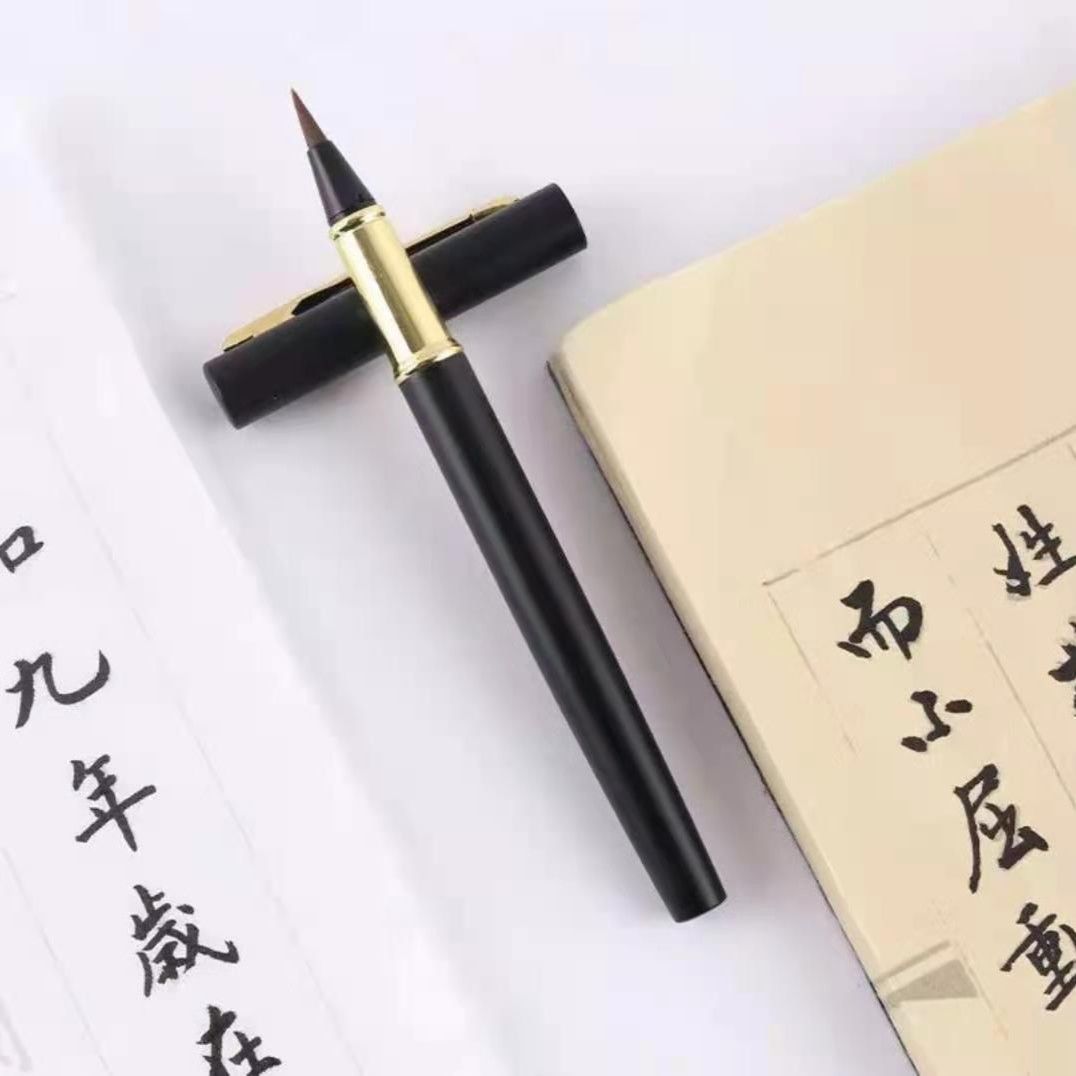 姓
而不屈重
九年歲在